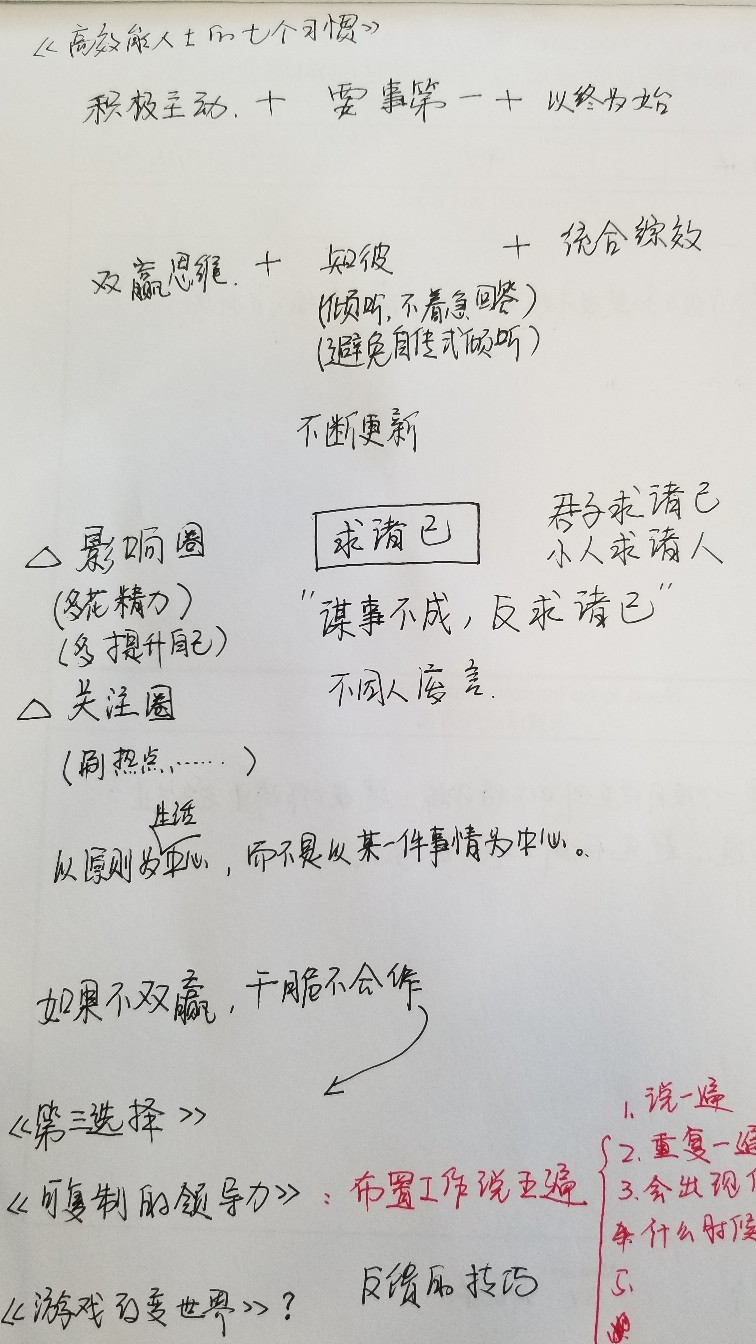 《高效能人士的七个习惯》
积极主动. + 要事第一 + 以终为始
双赢思维. + 知彼 + 统合综效
(倾听,不着急回答)
(避免自传式倾听)
不断更新
△ 影响圈
(多花精力)
(多提升自己)
△ 关注圈
(刷热点,……)
求诸己
君子求诸己
小人求诸人
"谋事不成，反求诸己"
不因人废言.
生活
以原则为中心，而不是以某一件事情为中心。
如果不双赢，干脆不合作
《第三选择》
《可复制的领导力》：布置工作说五遍
1. 说一遍
2. 重复一遍
3. 会出现
4. 什么时候
5.
反馈的技巧
《游戏改变世界》?